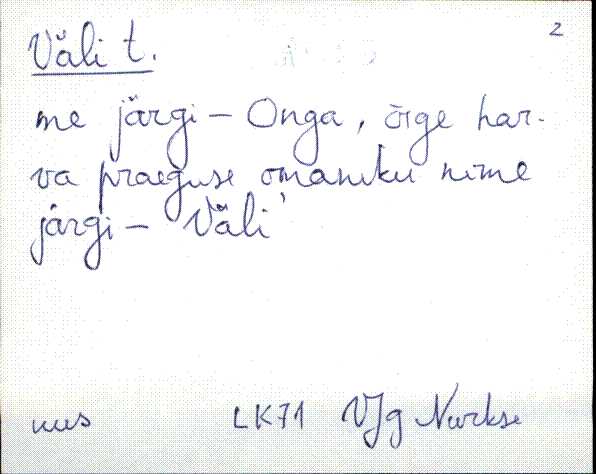 Väli t.
2
me järgi – Onga, õige har-
va praeguse omaniku nime
järgi – Väli'
uus LK71 VJg Nurkse